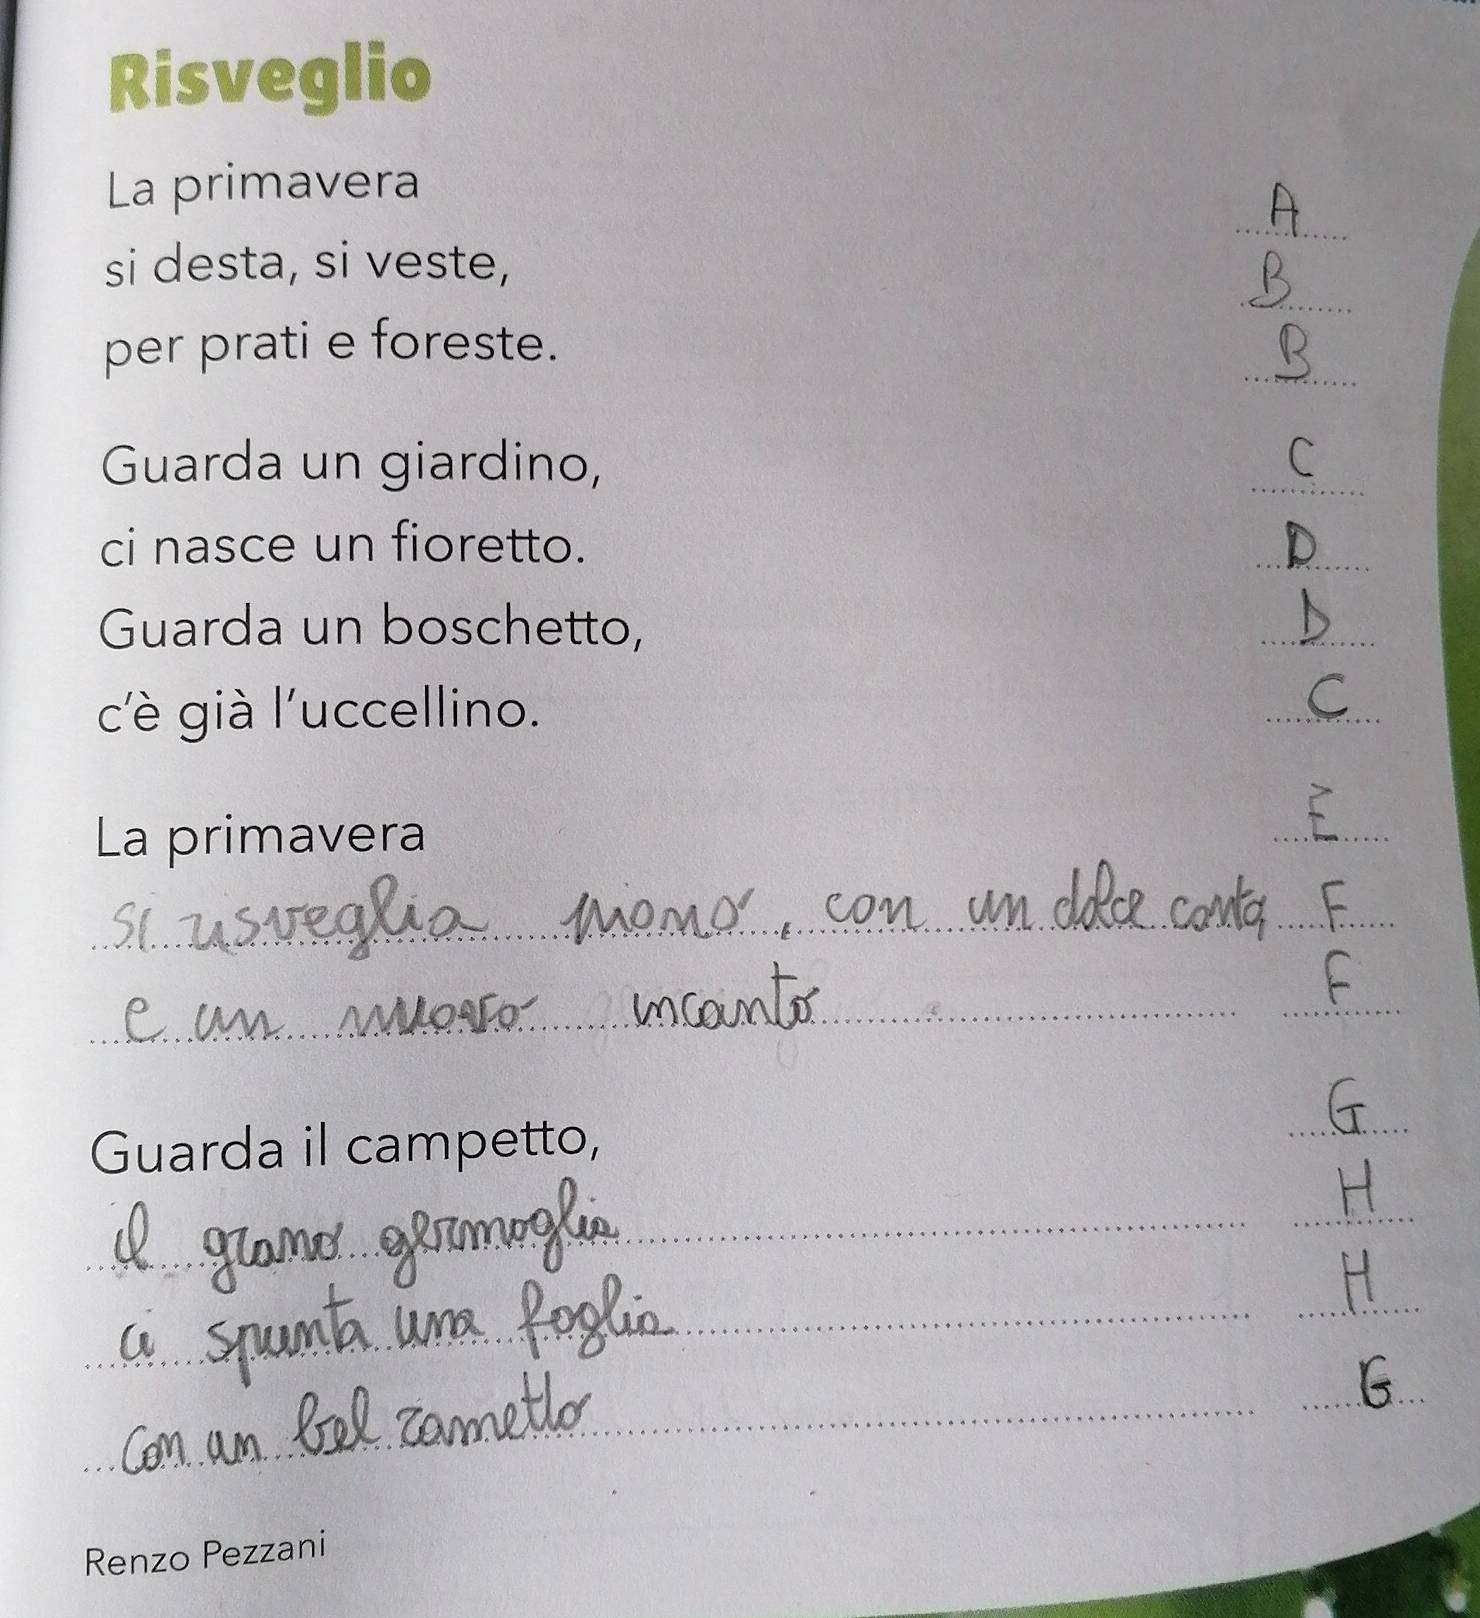 Risveglio
La primavera A
si desta, si veste, B
per prati e foreste. B
Guarda un giardino, C
ci nasce un fioretto. D
Guarda un boschetto, D
c'è già l'uccellino. C
La primavera E
si risveglia piano, con un dolce canto F
e un nuovo incanto F
Guarda il campetto, G
il grano germoglia H
ci spunta una foglia H
con un bel rametto G
Renzo Pezzani